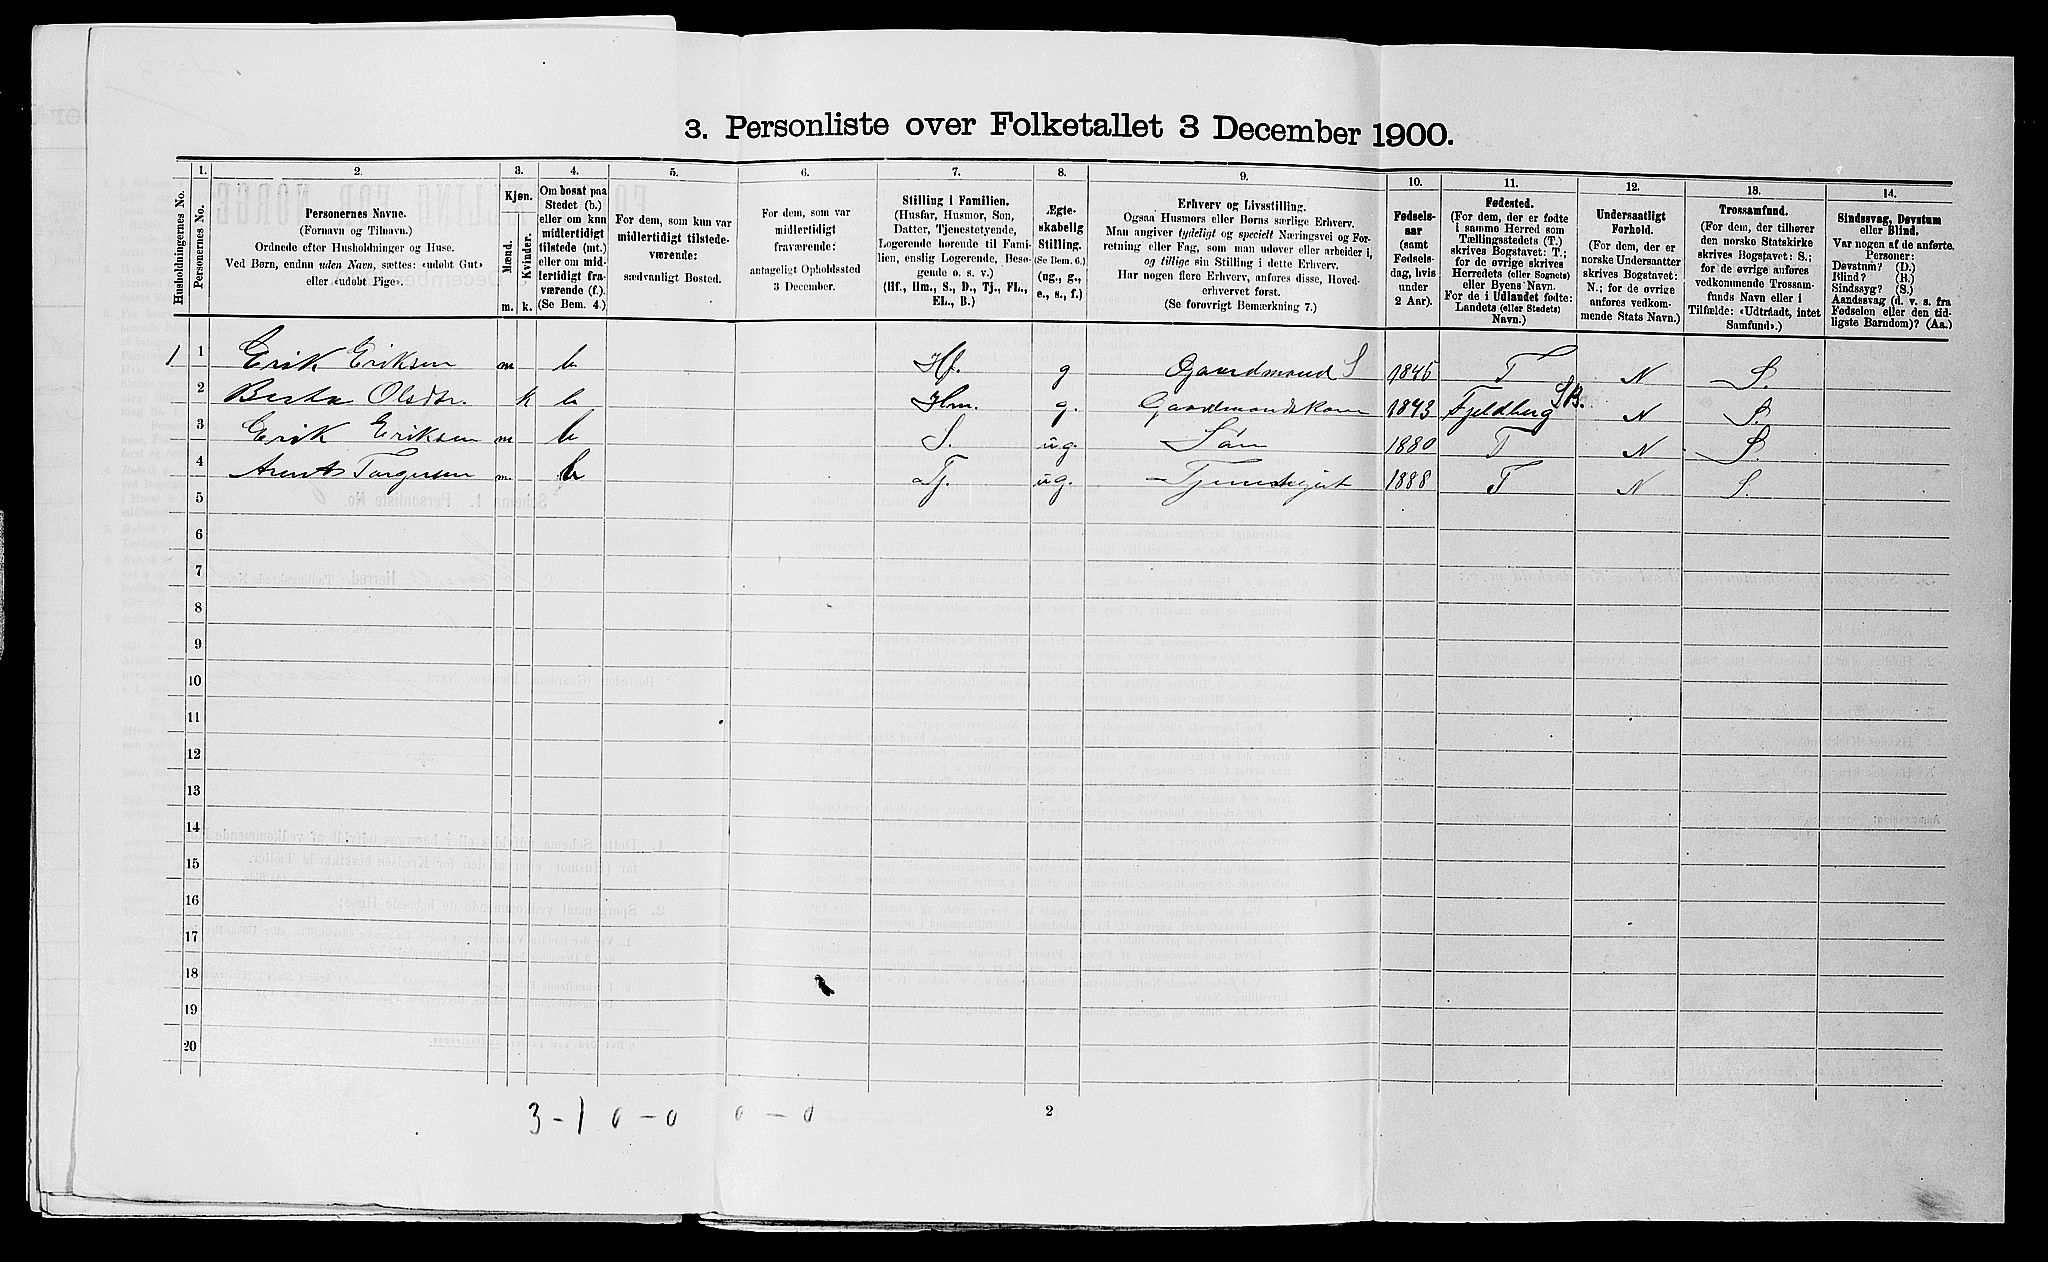 3. Personliste over Folketallet 3 December 1900.
Husholdningernes No.
1.
Personernes No.
2.
Personernes Navne.
(Fornavn og Tilnavn.)
Ordnede efter Husholdninger og Huse.
Ved Børn, endnu uden Navn, sættes: «udøbt Gut»
eller «udøbt Pige».
3.
Kjøn.
Mænd.
Kvinder.
m. k.
4.
Om bosat paa
Stedet (b.)
eller om kun
midlertidigt
tilstede (mt.)
eller om mid-
lertidigt fra-
værende (f.).
(Se Bem. 4.)
5.
For dem, som kun var
midlertidigt tilstede-
værende:
sædvanligt Bosted.
6.
For dem, som var
midlertidigt
fraværende:
antageligt Opholdssted
3 December.
7.
Stilling i Familien.
(Husfar, Husmor, Søn,
Datter, Tjenestetyende,
Logerende hørende til Fami-
lien, enslig Logerende, Besø-
gende o. s. v.)
(Hf., Hm., S., D., Tj., FL.,
EL., B.)
8.
Ægte-
skabelig
Stilling.
(Se Bem. 6.)
(ug., g.,
e., s., f.)
9.
Erhverv og Livsstilling.
Ogsaa Husmors eller Børns særlige Erhverv.
Man angiver tydeligt og specielt Næringsvei og For-
retning eller Fag, som man udøver eller arbeider i,
og tillige sin Stilling i dette Erhverv.
Har nogen flere Erhverv, anføres disse, Hoved-
erhvervet først.
(Se forøvrigt Bemærkning 7.)
10.
Fødsels-
aar
(samt
Fødsels-
dag, hvis
under
2 Aar).
11.
Fødested.
(For dem, der er fødte
i samme Herred som
Tællingsstedets (T.)
skrives Bogstavet: T.;
for de øvrige skrives
Herredets (eller Sognets)
eller Byens Navn.
For de i Udlandet fødte:
Landets (eller Stedets)
Navn.)
12.
Undersaatligt
Forhold.
(For dem, der er
norske Undersaatter
skrives Bogstavet:
N.; for de øvrige
anføres vedkom-
mende Stats Navn.)
13.
Trossamfund.
(For dem, der tilhører
den norske Statskirke
skrives Bogstavet: S.;
for de øvrige anføres
vedkommende Trossam-
funds Navn eller i
Tilfælde: «Udtraadt, intet
Samfund».)
14.
Sindssvag, Døvstum
eller Blind.
Var nogen af de anførte
Personer:
Døvstum? (D.)
Blind? (B.)
Sindssyg? (S.)
Aandssvag (d. v. s. fra
Fødselen eller den tid-
ligste Barndom)? (Aa.)
1 1 Erik Eriksen m b Hf. g Gaardmand S 1846 T N S.
2 Berta Olsdtr. k b Hm. g. Gaardmandskone 1843 Fjeldberg SB. N S.
3 Erik Eriksen m b S. ug. Søn 1880 T N S.
4 Arent Torgersen m. b Tj. ug. Tjenestegut 1888 T N S.
5
6
7
8
9
10
11
12
13
14
15
16
17
18
19
20
3 - 1 0 - 0 0 - 0
2